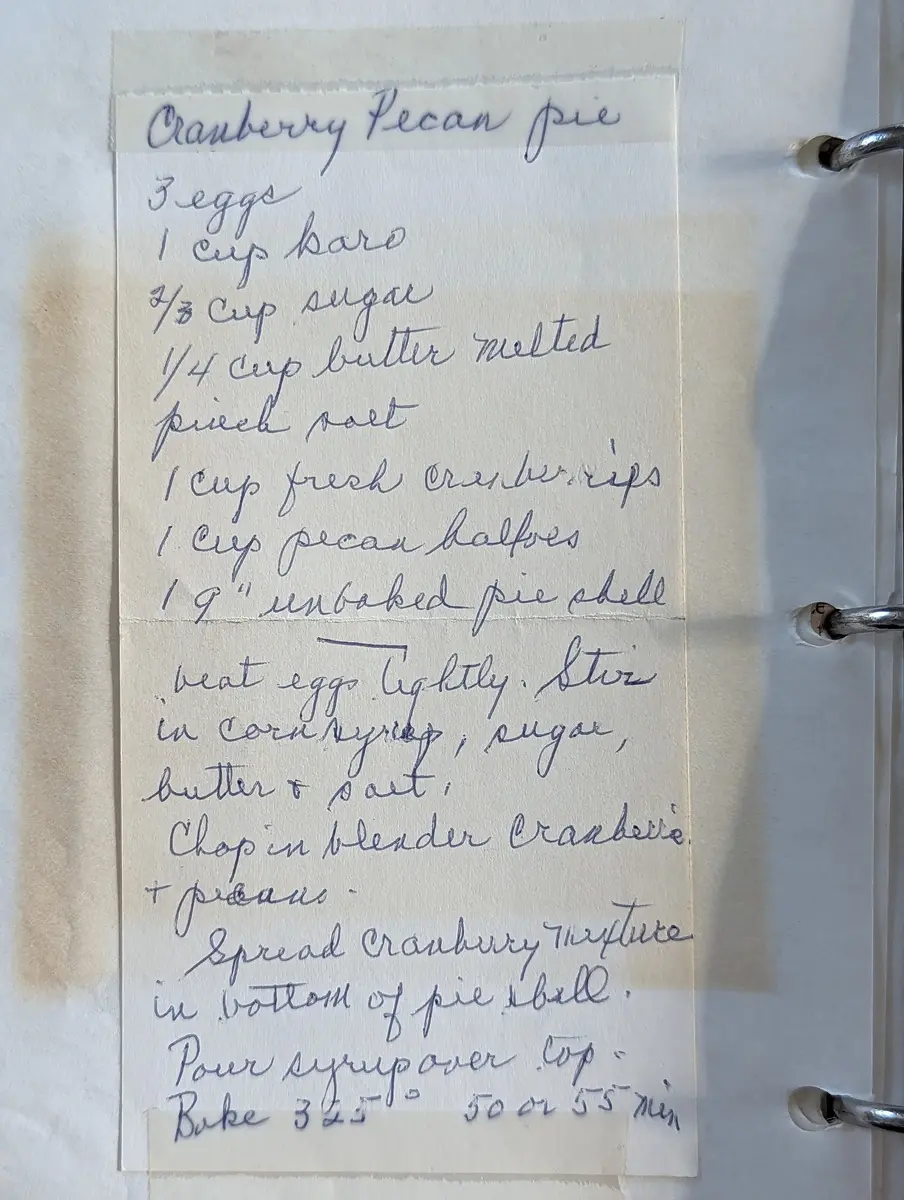 Cranberry Pecan pie
3 eggs
1 cup karo
2/3 cup sugar
1/4 cup butter melted
pinch salt
1 cup fresh cranberries
1 cup pecan halfves
1 9" unbaked pie shell
beat eggs lightly. Stir
in corn syrup, sugar,
butter + salt.
Chop in blender Cranberrie
+ pecans.
Spread cranberry mixture
in bottom of pie shell.
Pour syrup over top.
Bake 325° 50 or 55 min